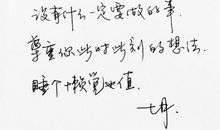 没有什么一定要做的事.
尊重你此时此刻的想法.
睡个懒觉也值.
七月.